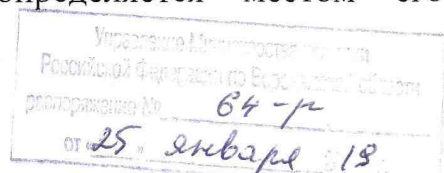 определяется местом его
Управление Министерства юстиции
Российской Федерации по Воронежской области
распоряжение № 64-р
от «25» января 19